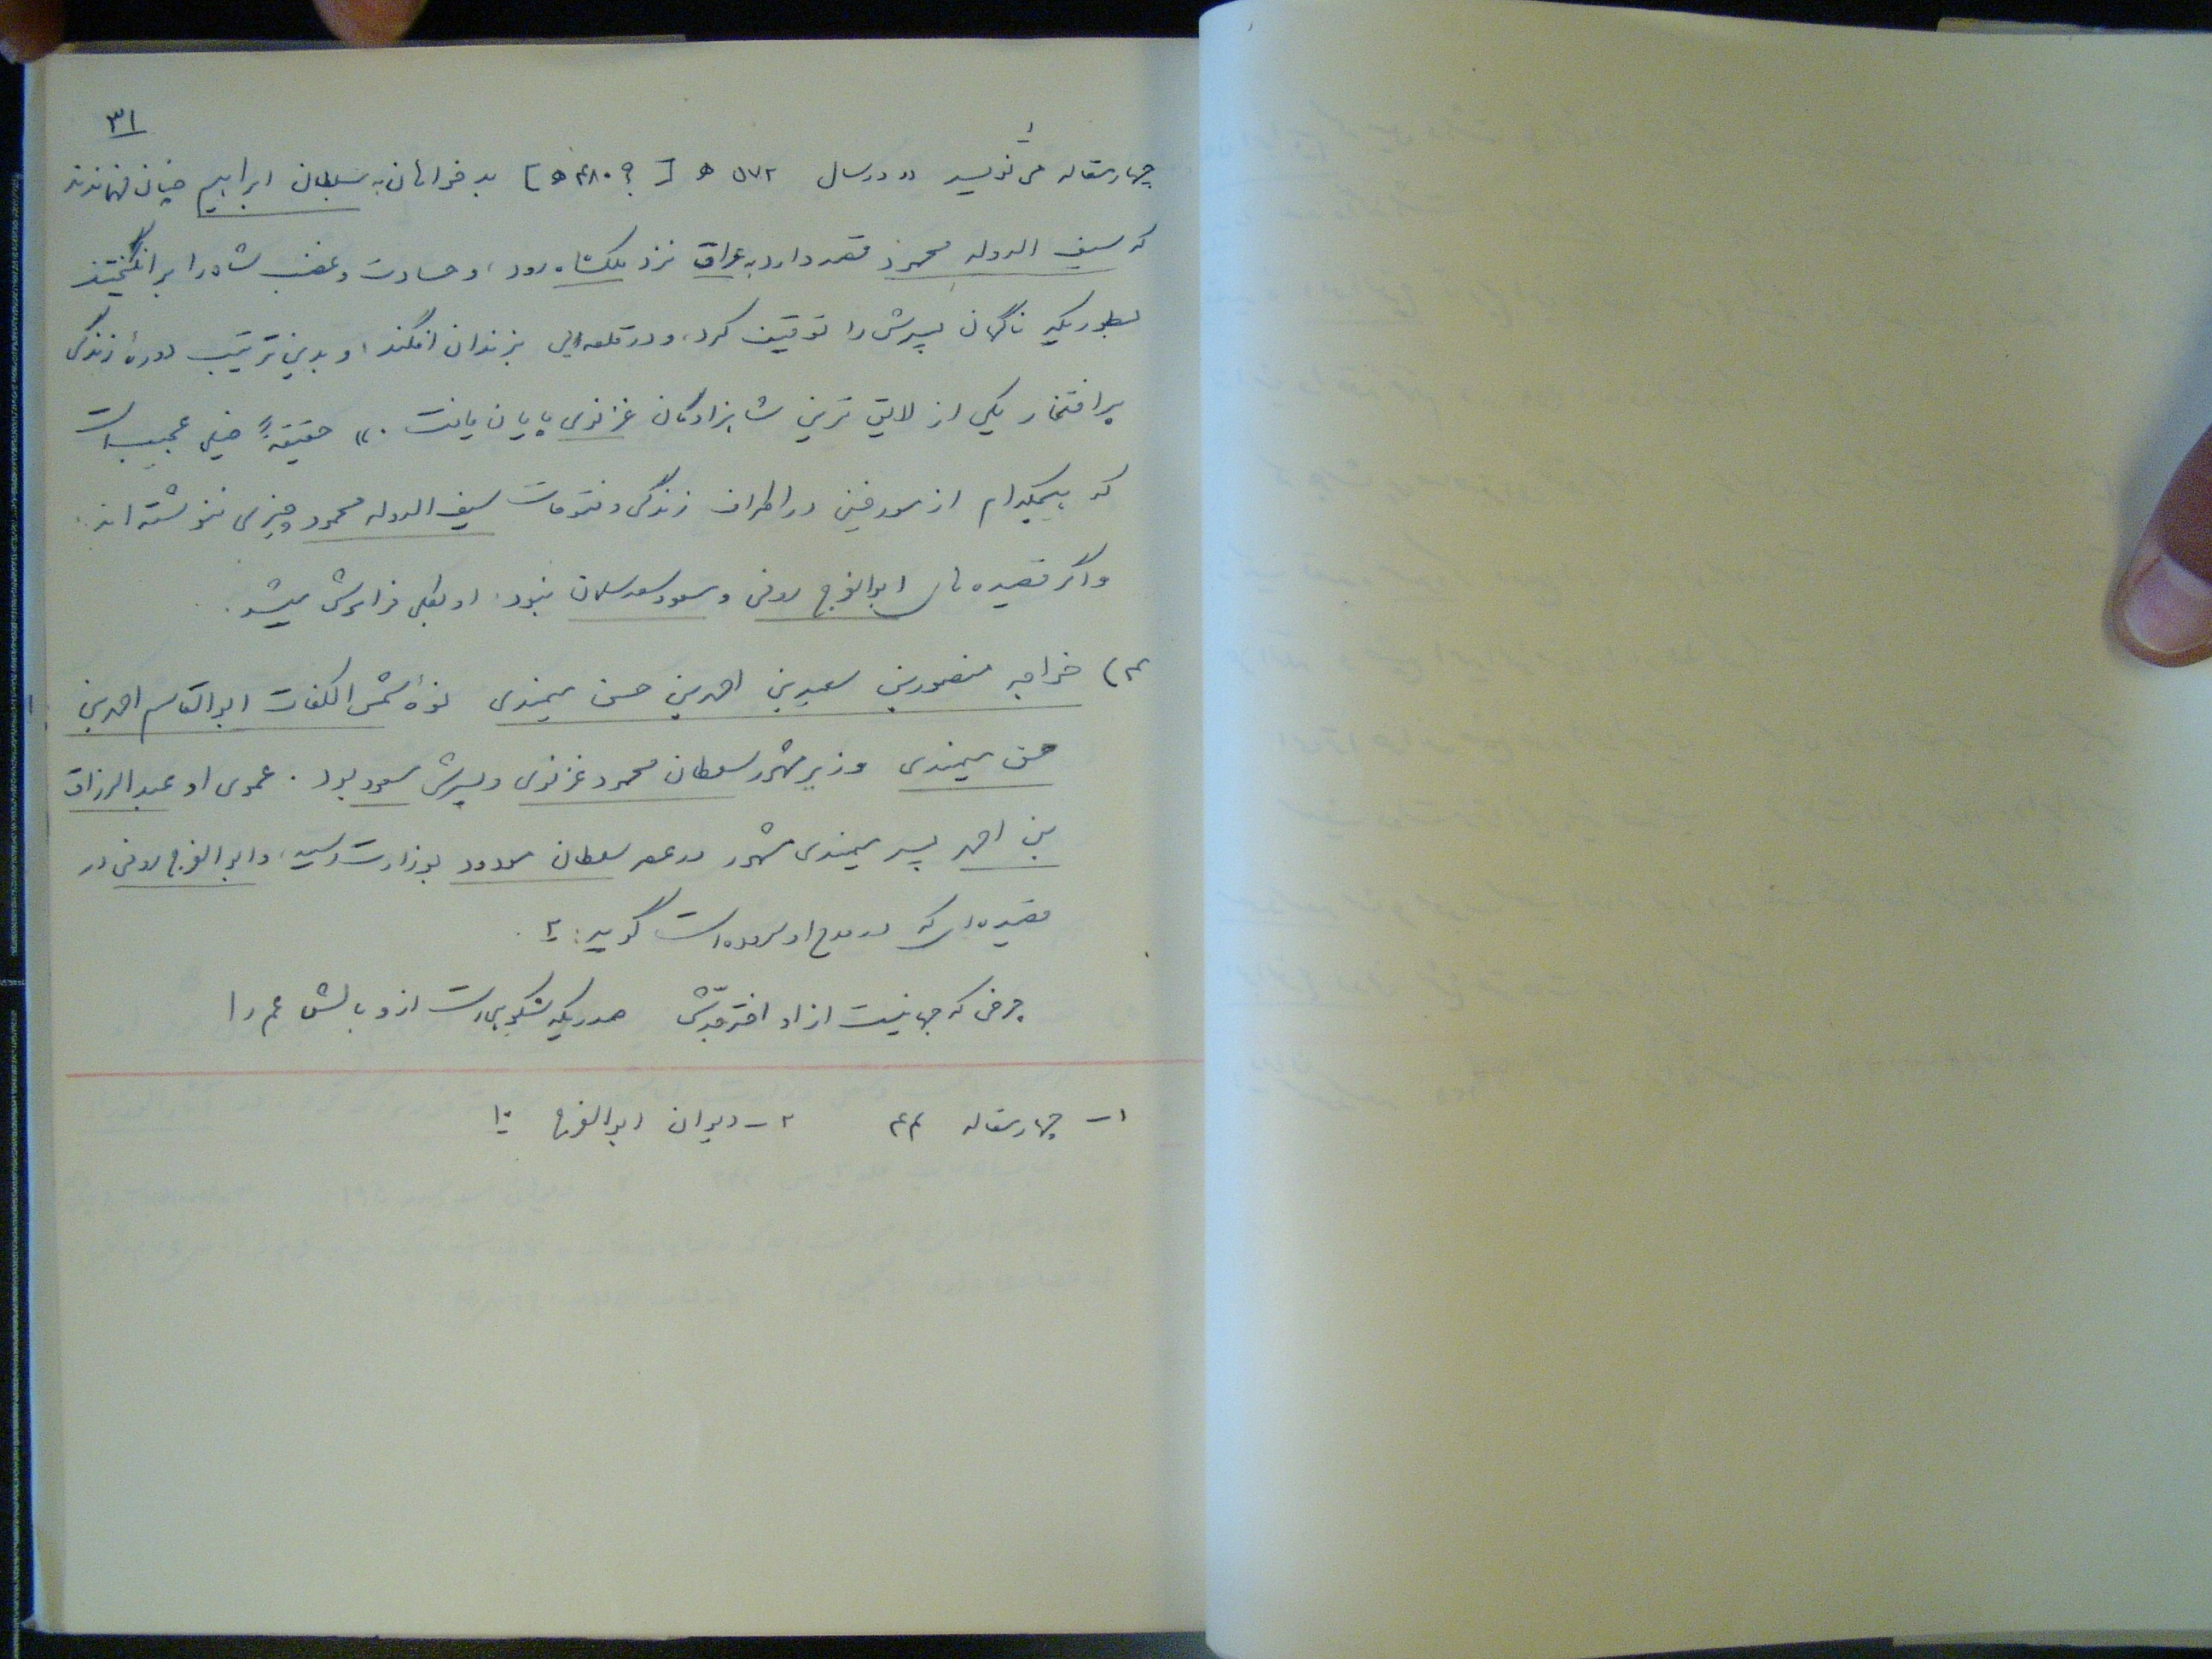 ۳۱
چهارمقاله می نویسد «در سال ۵۷۲ ه [؟ ۴۸۰ ه] بدخواهان به سلطان ابراهیم چنان فهماندند
که سیف الدوله محمود قصد دارد به عراق نزد ملکشاه رود، و حسادت و غضب شاه را برانگیختند
بطوریکه ناگهان پسرش را توقیف کرد، و در قلعه ای بزندان افکند، و بدین ترتیب دورهٔ زندگی
پرافتخار یکی از لایق ترین شاهزادگان غزنوی پایان یافت.» حقیقةً خیلی عجیب است
که هیچکدام از مورخین در اطراف زندگی و فتوحات سیف الدوله محمود چیزی ننوشته اند.
و اگر قصیده های ابوالفرج رونی و مسعود سعد سلمان نبود، او بکلی فراموش میشد.
۴) خواجه منصور بن سعید بن احمد بن حسن میمندی نوهٔ شمس الکفات ابوالقاسم احمد بن
حسن میمندی وزیر مشهور سلطان محمود غزنوی و پسرش مسعود بود. عموی او عبدالرزاق
بن احمد پسر میمندی مشهور در عصر سلطان مودود بوزارت رسید، و ابوالفرج رونی در
قصیده ای که در مدح او سروده است گوید: ۲
چرخی که جهانیست ازاد اختر جدش صدریکه شکوهی است ازو بالش عم را
۱- چهارمقاله ۴۴ ۲- دیوان ابوالفرج ۱۰